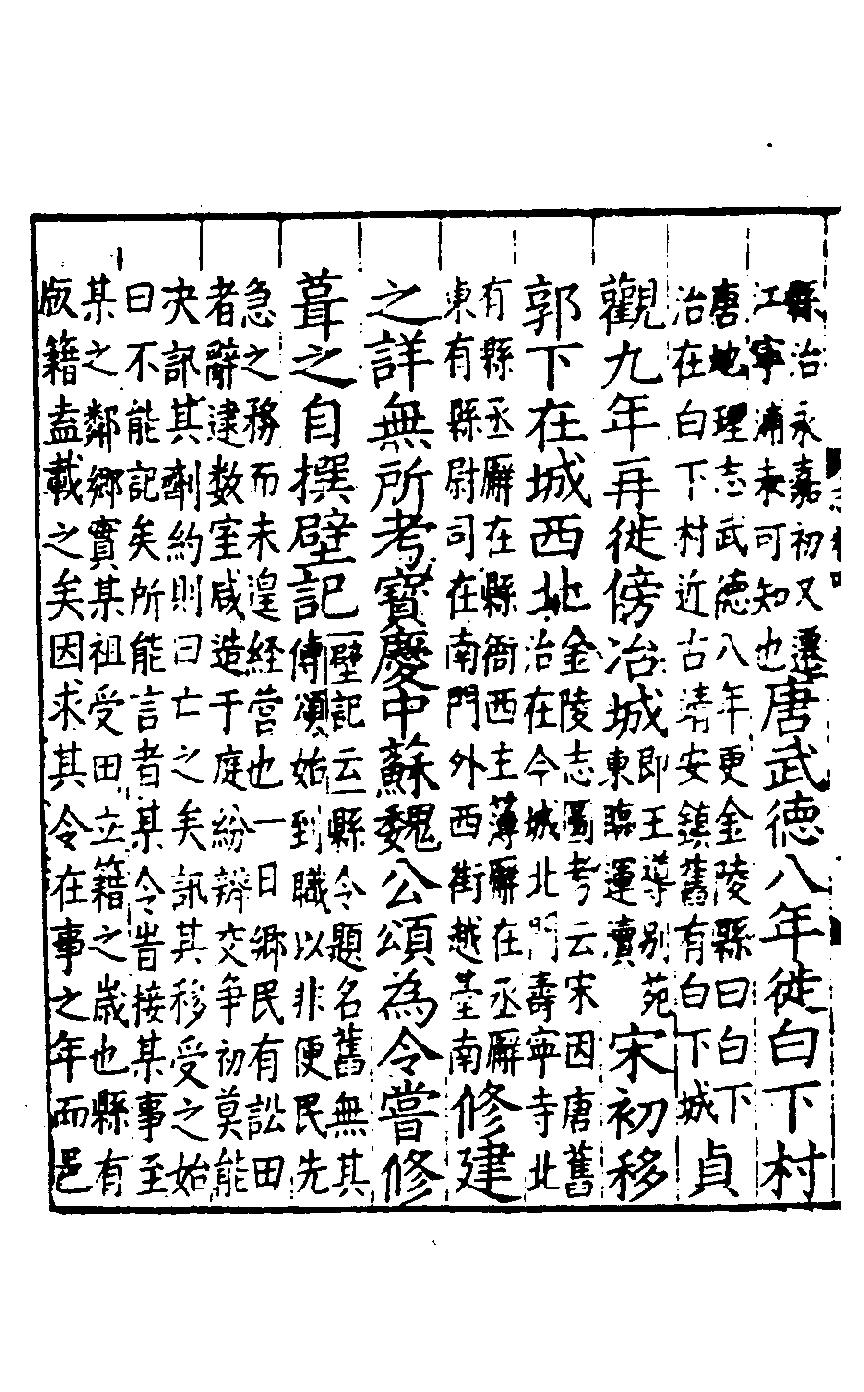 縣治永嘉初又遷
江寧浦未可知也
唐武德八年徙白下村
唐地理志武德八年更金陵縣曰白下
治在白下村近古靖安鎮舊有白下城
貞
觀九年再徙傍冶城
即王導别苑
東臨運瀆
宋初移
郭下在城西北
金陵志圖考云宋因唐舊
治在今城北門壽寧寺北
有縣丞廨在縣衙西主薄廨在丞廨
東有縣尉司在南門外西街越臺南
修建
之詳無所考寶慶中蘇魏公頌為令嘗修
葺之自撰壁記
壁記云縣令題名舊無其
傳頌始到職以非便民先
急之務而未遑経营也一日鄉民有訟田
者辭逮数室咸造于庭紛辨交争初莫能
决訊其劑約則曰亡之矣訊其移受之始
曰不能記矣所能言者某令昔接某事至
某之鄰鄉實某祖受田立籍之歳也縣有
版籍盍載之矣因求其令在事之年而邑